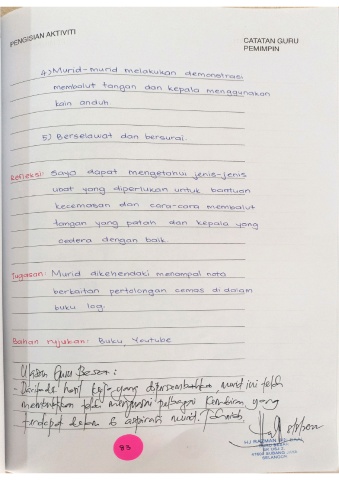 PENGISIAN AKTIVITI
CATATAN GURU
PEMIMPIN
4) Murid-murid melakukan demonstrasi
membalut tangan dan kepala menggunakan
kain anduh
5) Berselawat dan bersurai.
Refleksi: Saya dapat mengetahui jenis-jenis
ubat yang diperlukan untuk bantuan
kecemasan dan cara-cara membalut
tangan yang patah dan kepala yang
cedera dengan baik.
Tugasan: Murid dikehendaki menampal nota
berkaitan pertolongan cemas di dalam
buku log.
Bahan rujukan: Buku, Youtube
Ulasan Guru Besar:
- Daripada hasil kerja yang dipersembahkan, murid ini telah
membuktikan telah menguasai pelbagai kemahiran yang
terdapat dalam 6 aspirasi murid.
83
GURU BESAR
SELANGOR